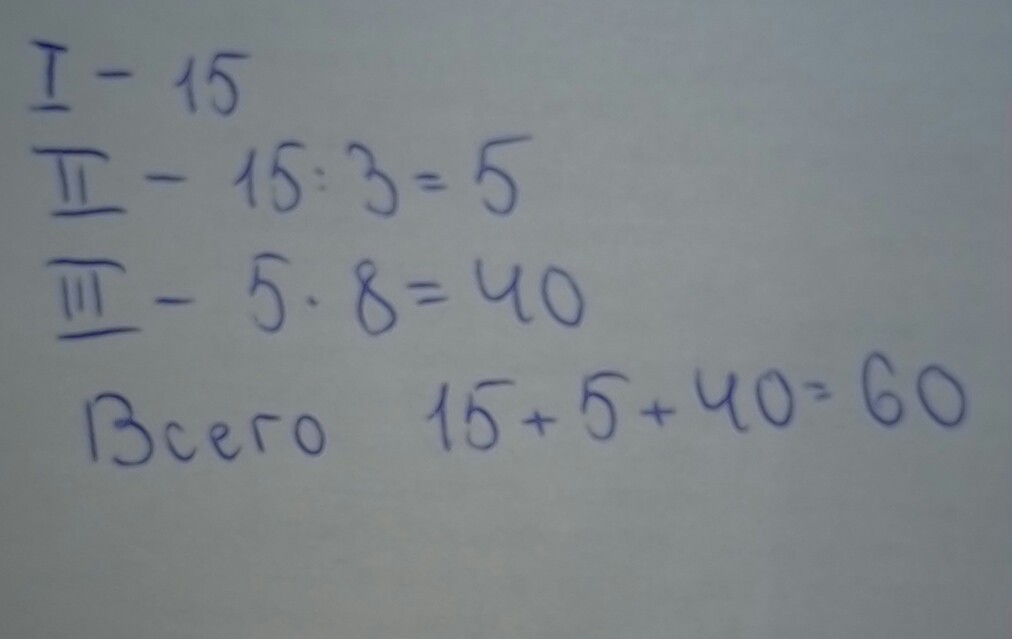 I - 15
II - 15:3=5
III - 5·8=40
Всего 15+5+40=60